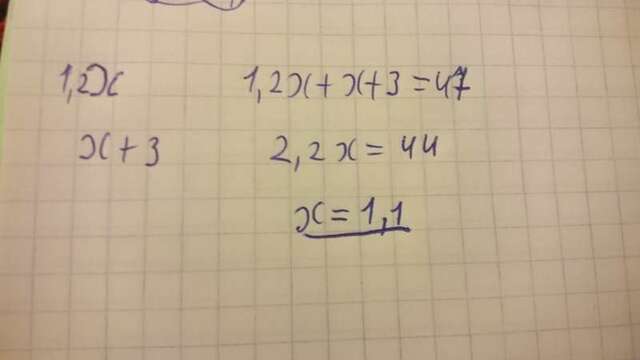 1,2x 1,2x+x+3=47
x+3 2,2x=44
x=1,1